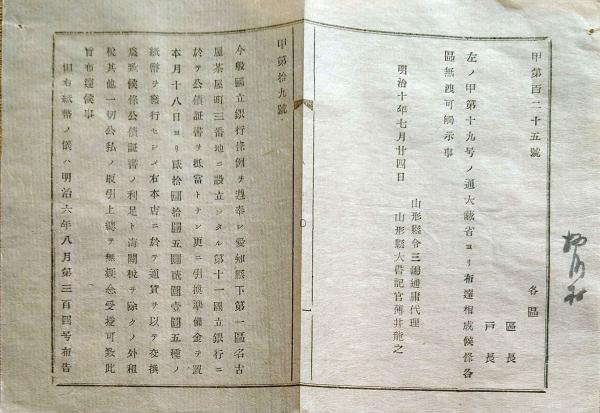 甲第百二十五號
各區
區長
戸長
左ノ甲第十九号ノ通大藏省ヨリ布達相成候條各
區無洩可觸示事
明治十年七月廿四日
山形縣令三島通庸代理
山形縣大書記官薄井龍之
甲第拾九號
今般國立銀行條例ヲ遵奉シ愛知縣下第一區名古
屋茶屋町三番地ニ設立シタル第十一國立銀行ニ
於テ公債証書ヲ抵當トナシ更ニ引換準備金ヲ置
本月十八日ヨリ貳拾圓拾圓五圓貳圓壹圓五種ノ
紙幣ヲ發行セシメ右本店ニ於テ通貨ヲ以テ交換
爲致候條公債証書ノ利足ト海關稅ヲ除クノ外租
稅其他一切公私ノ取引上總テ無疑念受授可致此
旨布達候事
但右紙幣ノ儀ハ明治六年八月第三百四号布告